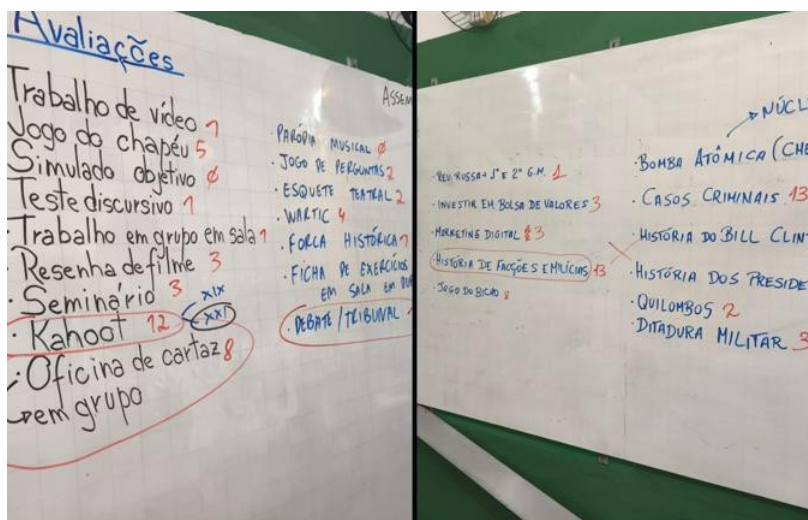 Avaliações
Trabalho de vídeo 1
Jogo do chapéu 5
Simulado objetivo ∅
Teste discursivo 1
· Trabalho em grupo em sala 1
· Resenha de filme 3
· Seminário 3
· Kahoot 12
XIX
XXI
· Oficina de cartaz 8
em grupo
ASSEM
· PARÓDIA MUSICAL ∅
· JOGO DE PERGUNTAS 2
· ESQUETE TEATRAL 2
· WARTIC 4
· FORCA HISTÓRICA 1
· FICHA DE EXERCÍCIOS
EM SALA EM
· DEBATE / TRIBUNAL
· REV. RUSSA + 1ª E 2ª G.M. 1
· INVESTIR EM BOLSA DE VALORES 3
· MARKETING DIGITAL 3
· HISTÓRIA DE FACÇÕES E MILÍCIAS 13
· JOGO DO BICHO 8
NÚCL
· BOMBA ATÔMICA (CHE
· CASOS CRIMINAIS 13
· HISTÓRIA DO BILL CLIN
· HISTÓRIA DOS PRESIDE
· QUILOMBOS 2
· DITADURA MILITAR 3